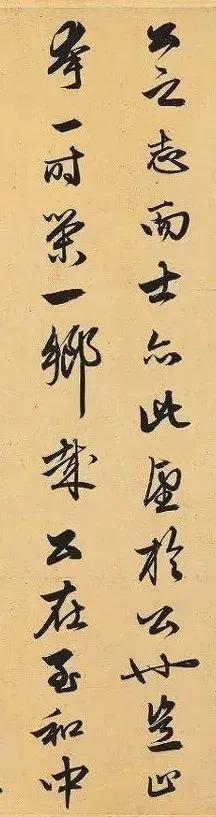 公之志而士亦此望於公也豈止
夸一时榮一鄉哉公在至和中